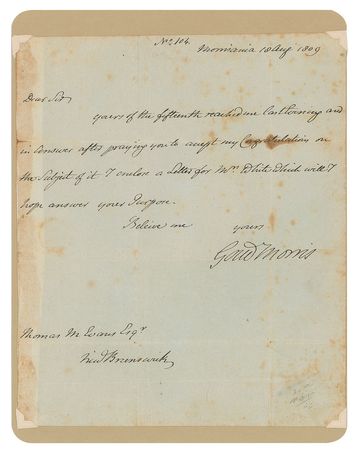 No. 104.
Morrisania 18 Aug 1809
Dear Sir
yours of the fifteenth reached me last Evening and
in answer after praying you to accept my Congratulations on
the Subject of it I enclose a Letter for Mr. White which will I
hope answer your Purpose.
Believe me yours
Gouv Morris
Thomas M Evans Esqr
New Brunswick